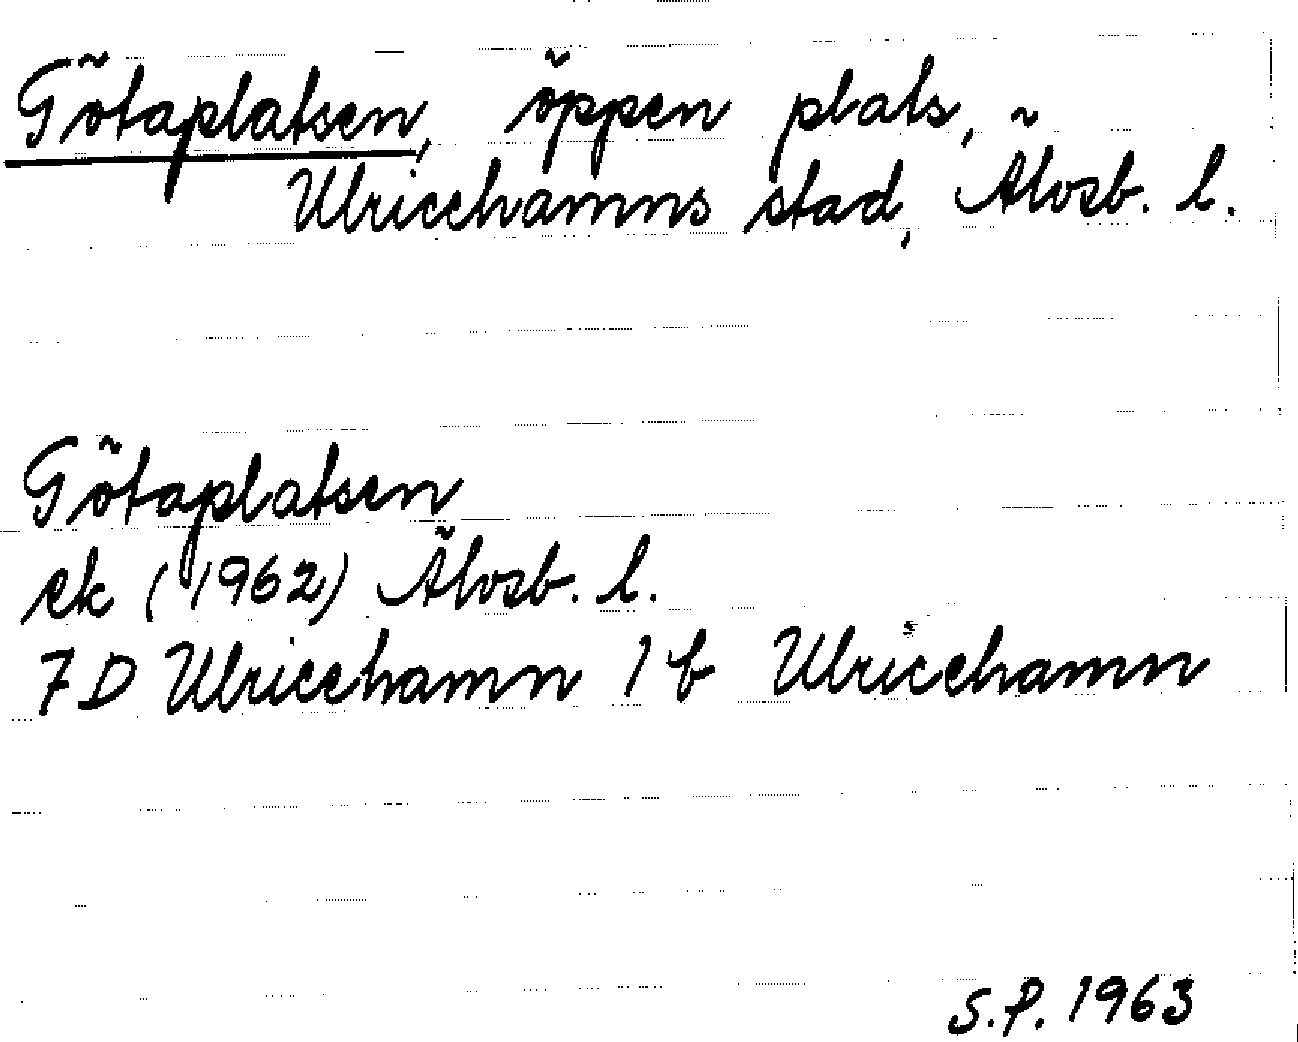 Götaplatsen, öppen plats,
Ulricehamns stad, Älvsb. l.
Götaplatsen
ek (1962) Älvsb. l.
7D Ulricehamn 1 b Ulricehamn
S.P. 1963